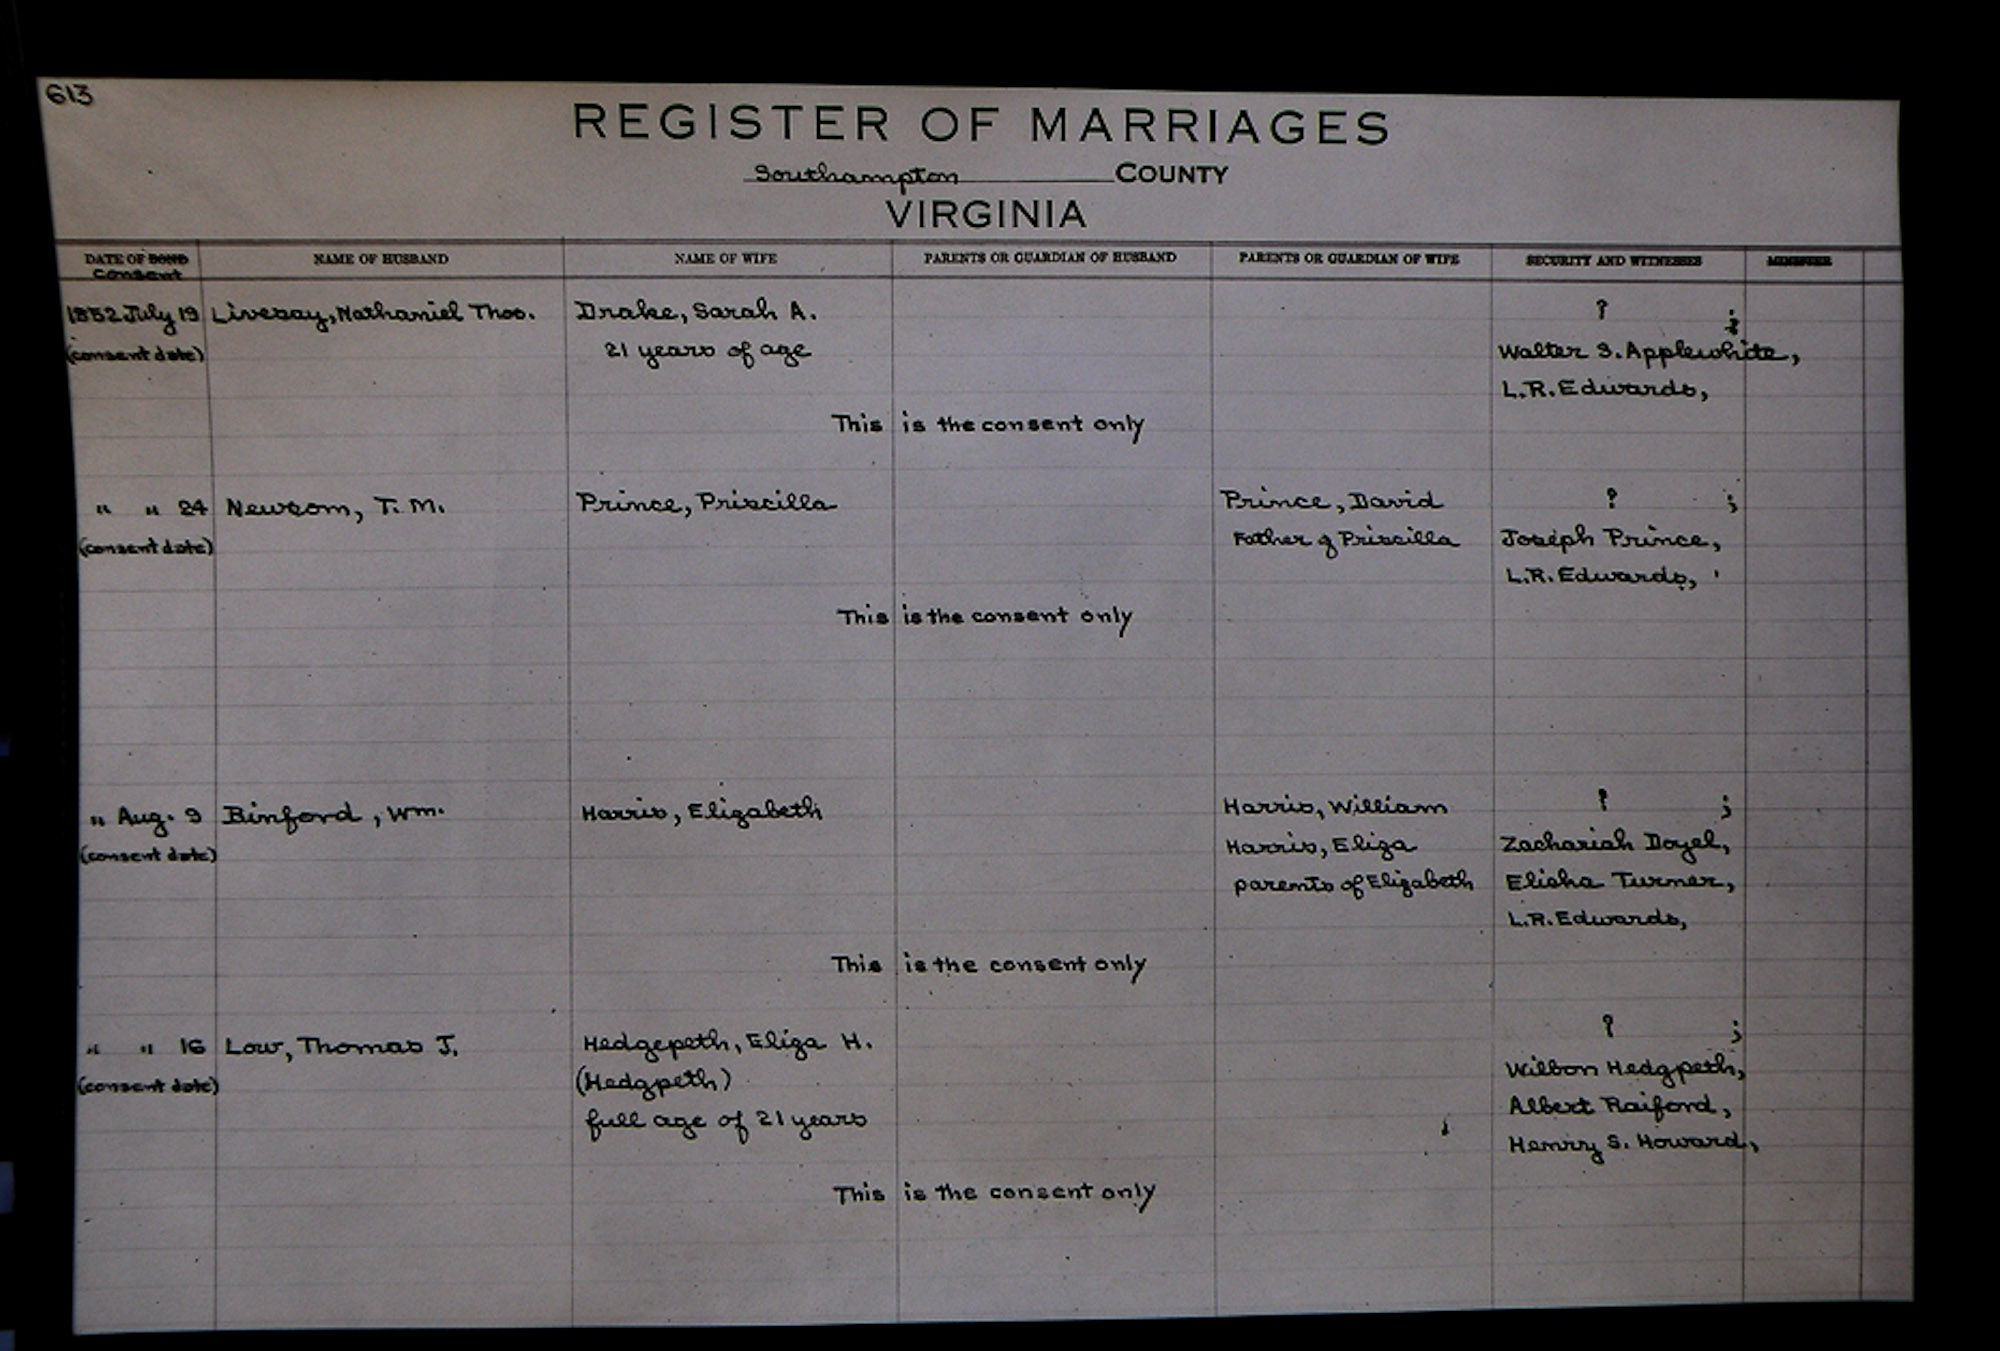 613
REGISTER OF MARRIAGES
Southampton COUNTY
VIRGINIA
DATE OF BOND NAME OF HUSBAND NAME OF WIFE PARENTS OR GUARDIAN OF HUSBAND PARENTS OR GUARDIAN OF WIFE SECURITY AND WITNESSES MINISTER
Consent
1852 July 19 Livesay, Nathaniel Thos. Drake, Sarah A. ? ;
(consent date) 21 years of age Walter S. Applewhite,
L.R. Edwards,
This is the consent only
" " 24 Newsom, T. M. Prince, Priscilla Prince, David ? ;
(consent date) Father of Priscilla Joseph Prince,
L.R. Edwards,
This is the consent only
" Aug. 9 Binford, Wm. Harris, Elizabeth Harris, William ? ;
(consent date) Harris, Eliza Zachariah Doyel,
parents of Elizabeth Elisha Turner,
L.R. Edwards,
This is the consent only
" " 16 Low, Thomas J. Hedgepeth, Eliza H. ? ;
(consent date) (Hedgpeth) Wilson Hedgpeth,
full age of 21 years Albert Raiford,
Henry S. Howard,
This is the consent only